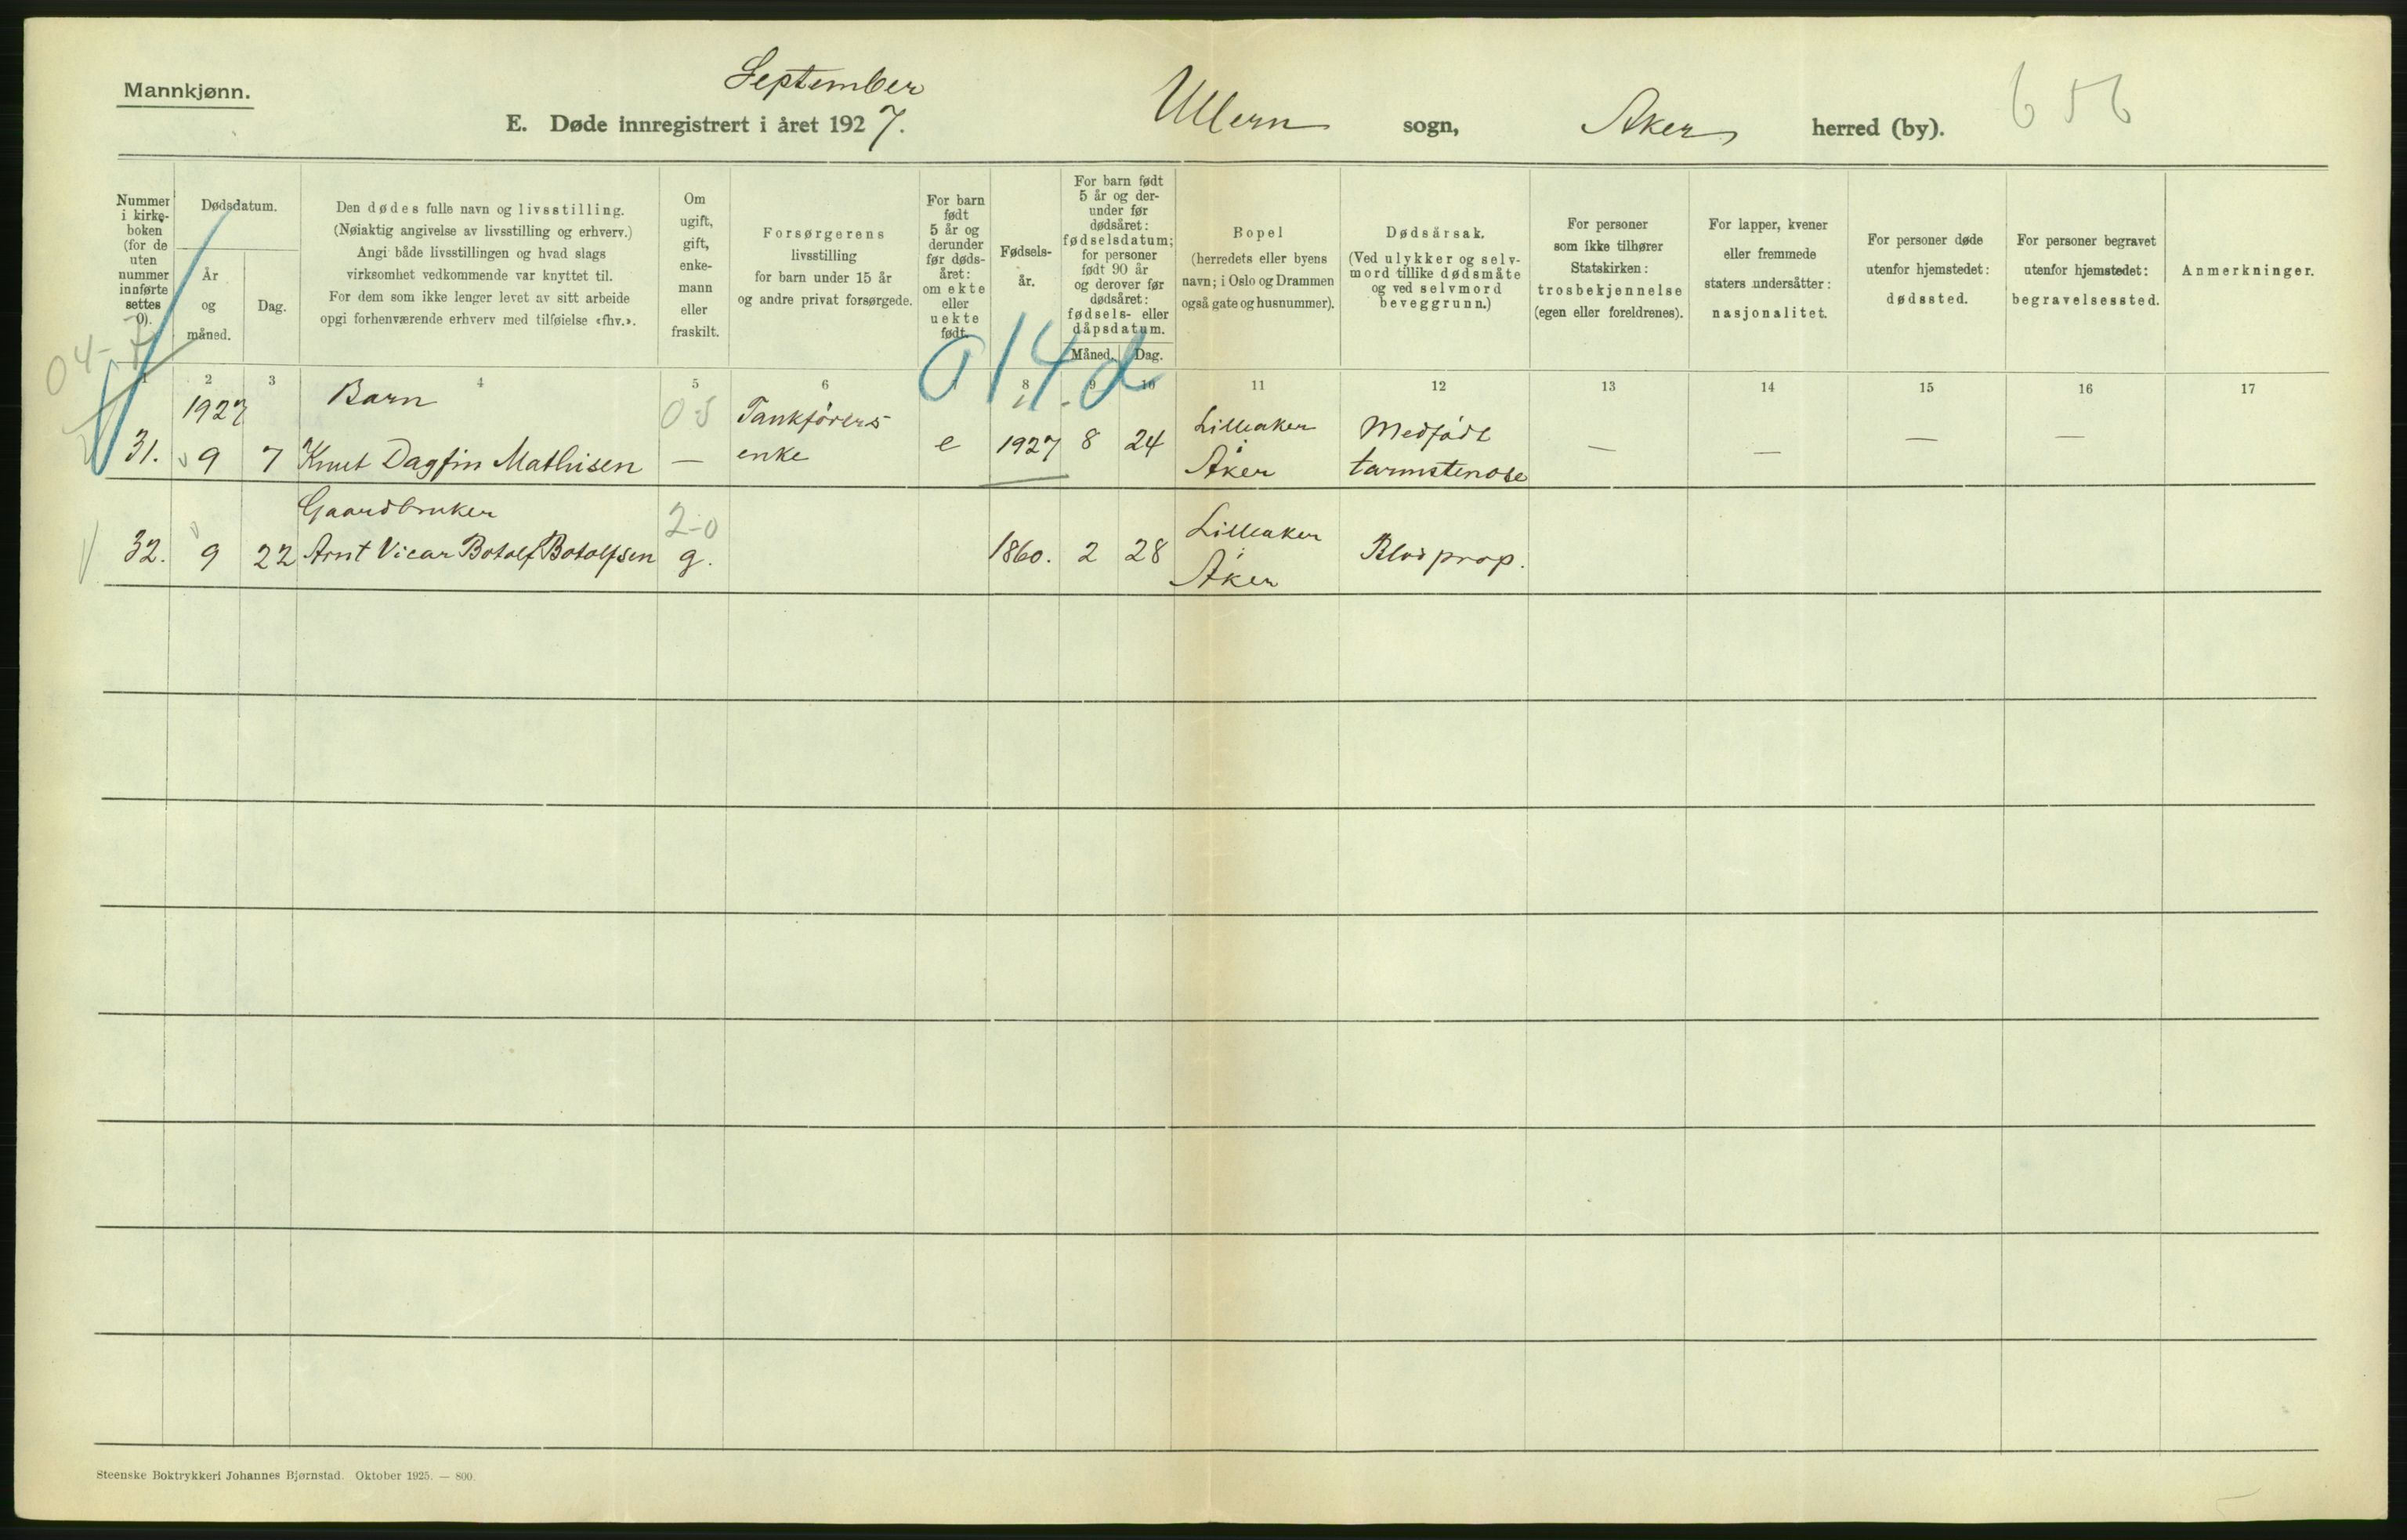 Mannkjønn.
September
E. Døde innregistrert i året 1927.
Ullern sogn, Aker herred (by).
656
Nummer i kirke-boken (for de uten nummer innførte settes 0).
Dødsdatum.
År og måned.
Dag.
Den dødes fulle navn og livsstilling.
(Nøiaktig angivelse av livsstilling og erhverv.)
Angi både livsstillingen og hvad slags
virksomhet vedkommende var knyttet til.
For dem som ikke lenger levet av sitt arbeide
opgi forhenværende erhverv med tilføielse «fhv.».
Om ugift, gift, enke-mann eller fraskilt.
Forsørgerens
livsstilling
for barn under 15 år
og andre privat forsørgede.
For barn født 5 år og derunder før døds-året: om ekte eller uekte født.
Fødsels-år.
For barn født 5 år og der-under før dødsåret: fødselsdatum; for personer født 90 år og derover før dødsåret: fødsels- eller dåpsdatum.
Måned. Dag.
Bopel
(herredets eller byens
navn; i Oslo og Drammen
også gate og husnummer).
Dødsårsak.
(Ved ulykker og selv-
mord tillike dødsmåte
og ved selvmord
beveggrunn.)
For personer
som ikke tilhører
Statskirken:
trosbekjennelse
(egen eller foreldrenes).
For lapper, kvener
eller fremmede
staters undersåtter:
nasjonalitet.
For personer døde
utenfor hjemstedet:
dødssted.
For personer begravet
utenfor hjemstedet:
begravelsessted.
Anmerkninger.
04-7
014.d
1 2 3 4 5 6 7 8 9 10 11 12 13 14 15 16 17
1927 Barn 0-5 Tankförers Lilleaker Medfödt
31. 9 7 Knut Dagfin Mathisen — enke e 1927 8 24 Aker tarmstenose — — — —
Gaardbruker 2-0 Lilleaker
32. 9 22 Arnt Vicar Botolf Botolfsen g. 1860. 2 28 Aker Blodprop.
Steenske Boktrykkeri Johannes Bjørnstad. Oktober 1925. — 800.